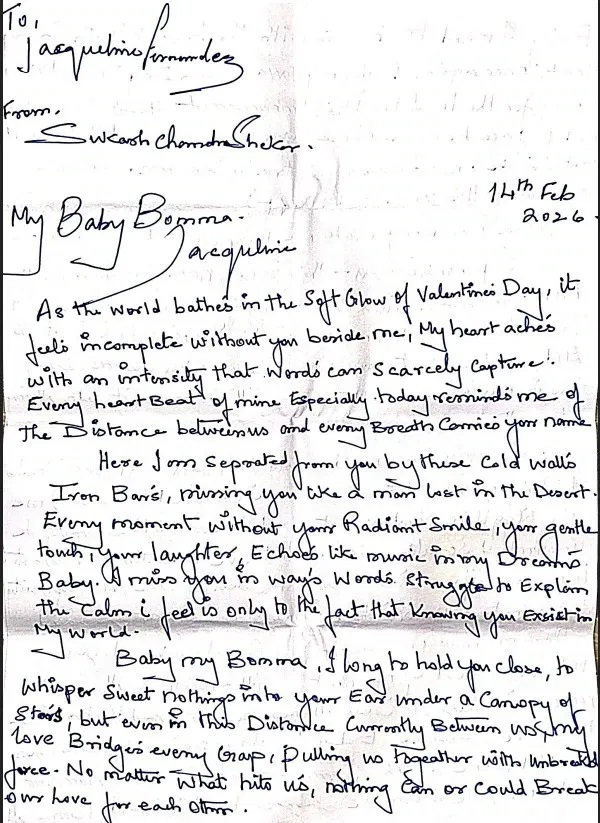 To,
Jacqueline Fernandez
From,
Sukash Chandra Shekar.
14th Feb
2026.
My Baby Bomma.
Jacqueline
As the World bathes in the Soft Glow of Valentine's Day, it
feels incomplete without you beside me, My heart aches
with an intensity that Words can Scarcely Capture.
Every heart Beat of mine Especially today reminds me of
the Distance between us and every Breath Carries your name
Here I am Seprated from you by these Cold walls
Iron Bars, missing you like a man lost in The Desert.
Every moment without your Radiant Smile, your gentle
touch, your laughter, Echoes like music in my Dreams
Baby. I miss you in ways Words Struggle to Explain
the Calm i feel is only to the fact that Knowing you Exsist in
My World.
Baby my Bomma, I long to hold you close, to
Whisper Sweet nothings into your Ear under a Canopy of
Stars, but even in this Distance Currently Between us, my
love Bridges every Gap, Pulling us together with
force. No matter What hits us, nothing Can or Could Break
Our Love for each other.